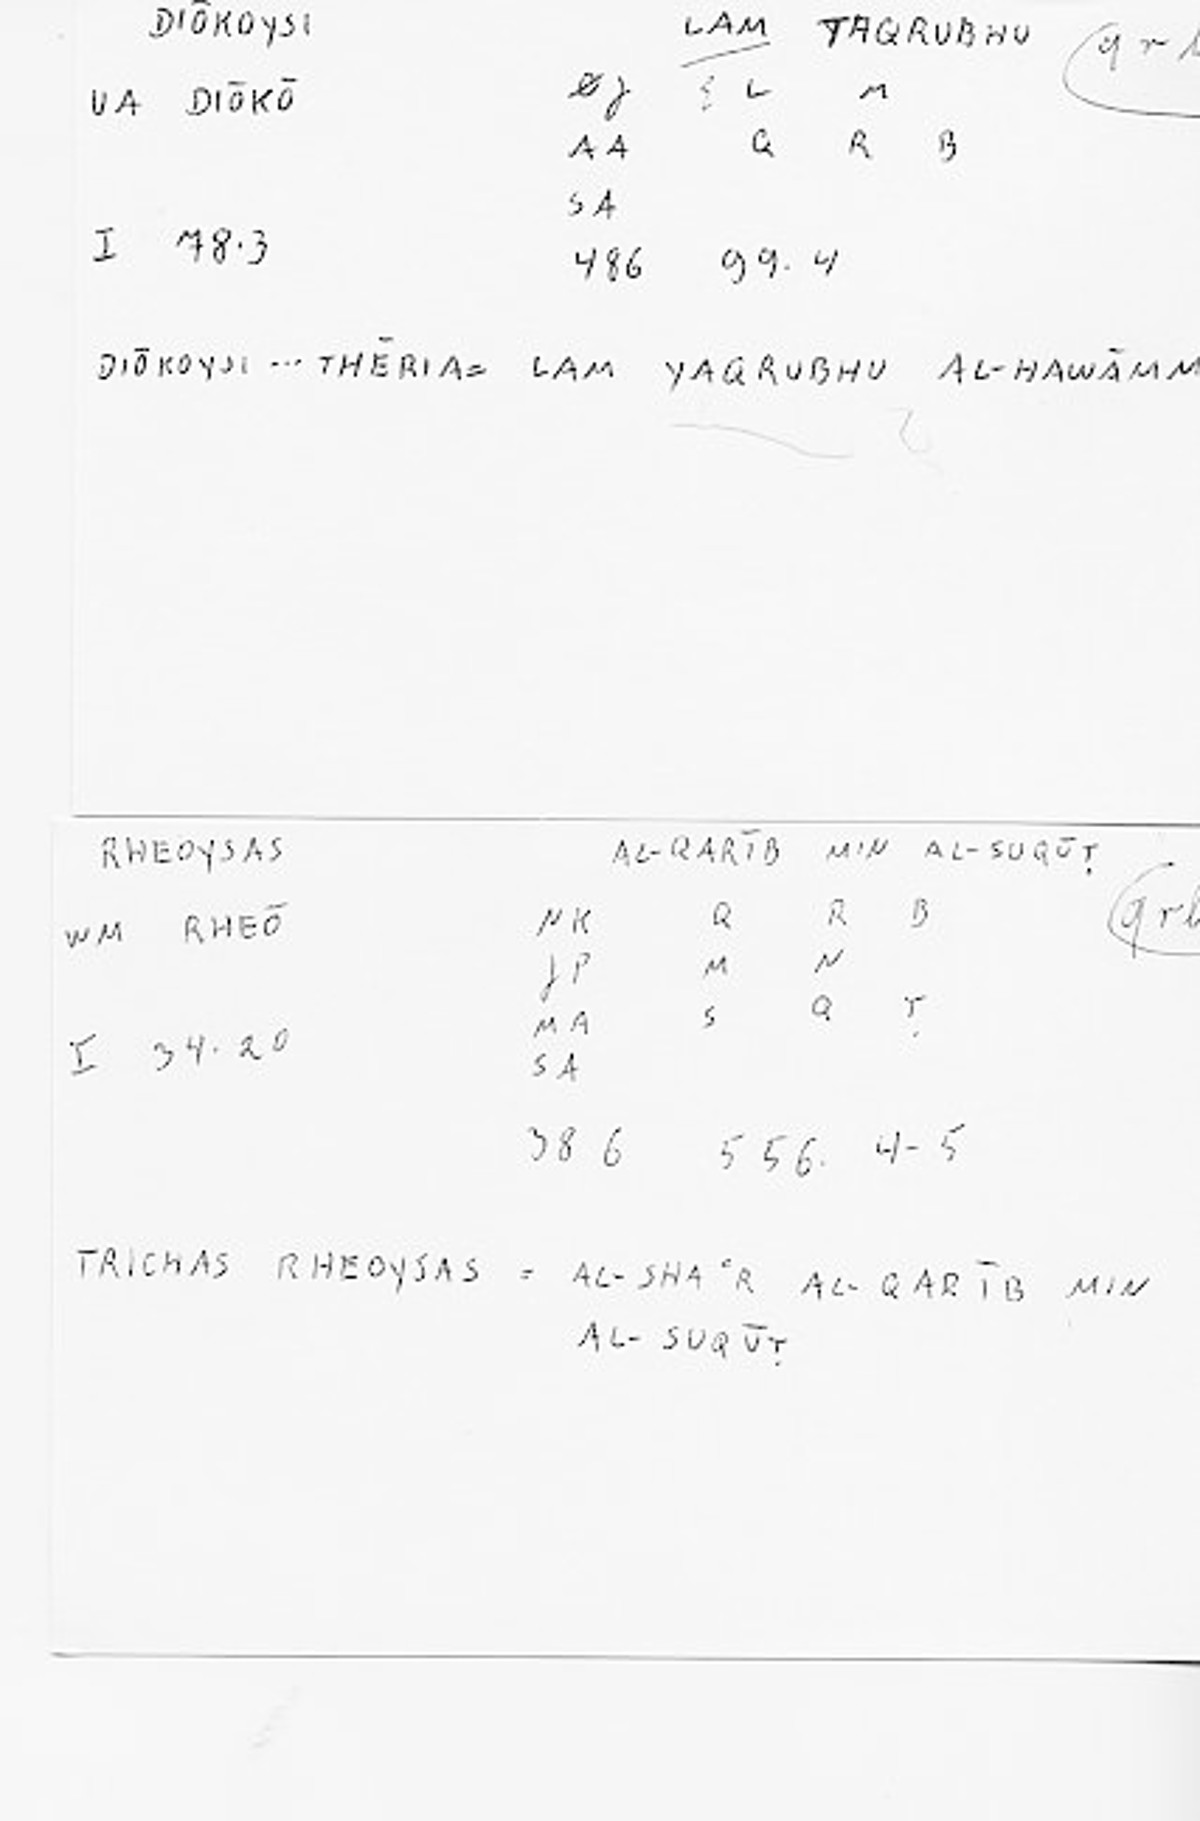 DIŌKOYSI LAM TAQRUBHU
VA DIŌKŌ ØJ L M
AA Q R B
SA
I 78.3 486 99.4
DIŌKOYSI ... THĒRIA = LAM YAQRUBHU AL-HAWĀMM
RHEOYSAS AL-QARĪB MIN AL-SUQŪṬ
qrb
WM RHEŌ NK Q R B
JP M N
MA S Q Ṭ
I 34.20 SA
386 556. 4-5
TRICHAS RHEOYSAS = AL-SHAʿR AL-QARĪB MIN
AL-SUQŪṬ